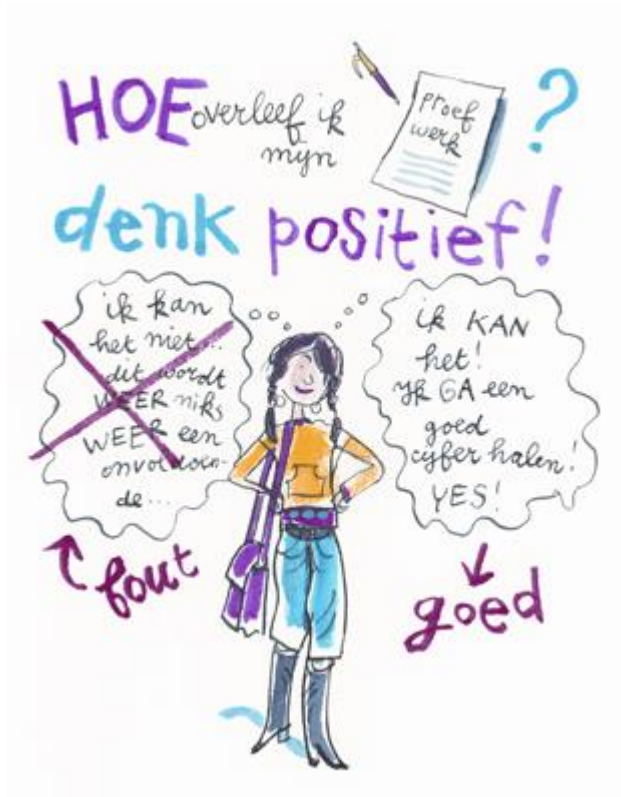 HOE overleef ik
mijn
proef
werk
?
denk positief!
ik kan
het niet...
dit wordt
WEER niks
WEER een
onvoldoen-
de...
ik KAN
het!
Ik GA een
goed
cijfer halen!
YES!
fout
goed